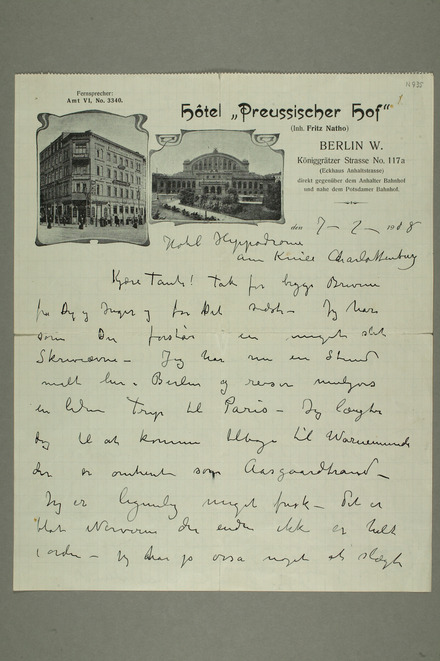 N 935
Fernsprecher:
Amt VI, No. 3340.
Hôtel „Preussischer Hof"
(Inh. Fritz Natho)
BERLIN W.
Königgrätzer Strasse No. 117a
(Eckhaus Anhaltstrasse)
direkt gegenüber dem Anhalter Bahnhof
und nahe dem Potsdamer Bahnhof.
den 7 – 2 – 1908
Hotel Hippodrome
am Knie Charlottenburg
Kjære Tante! Tak for begge Brevene
fra Dig og Inger og for det sidste – Jeg har
som Du forstår en meget slet
Skriveævne – Jeg har nu en Stund
været her i Berlin og reiser muligens
en liden Tur til Paris – Jeg længter
dog til at komme tilbage til Warnemünde
der er omtrent som Aasgaardstrand –
Jeg er legemlig meget frisk – det er
blot Nerverne der endnu ikke er helt
i orden – Jeg har jo også meget at